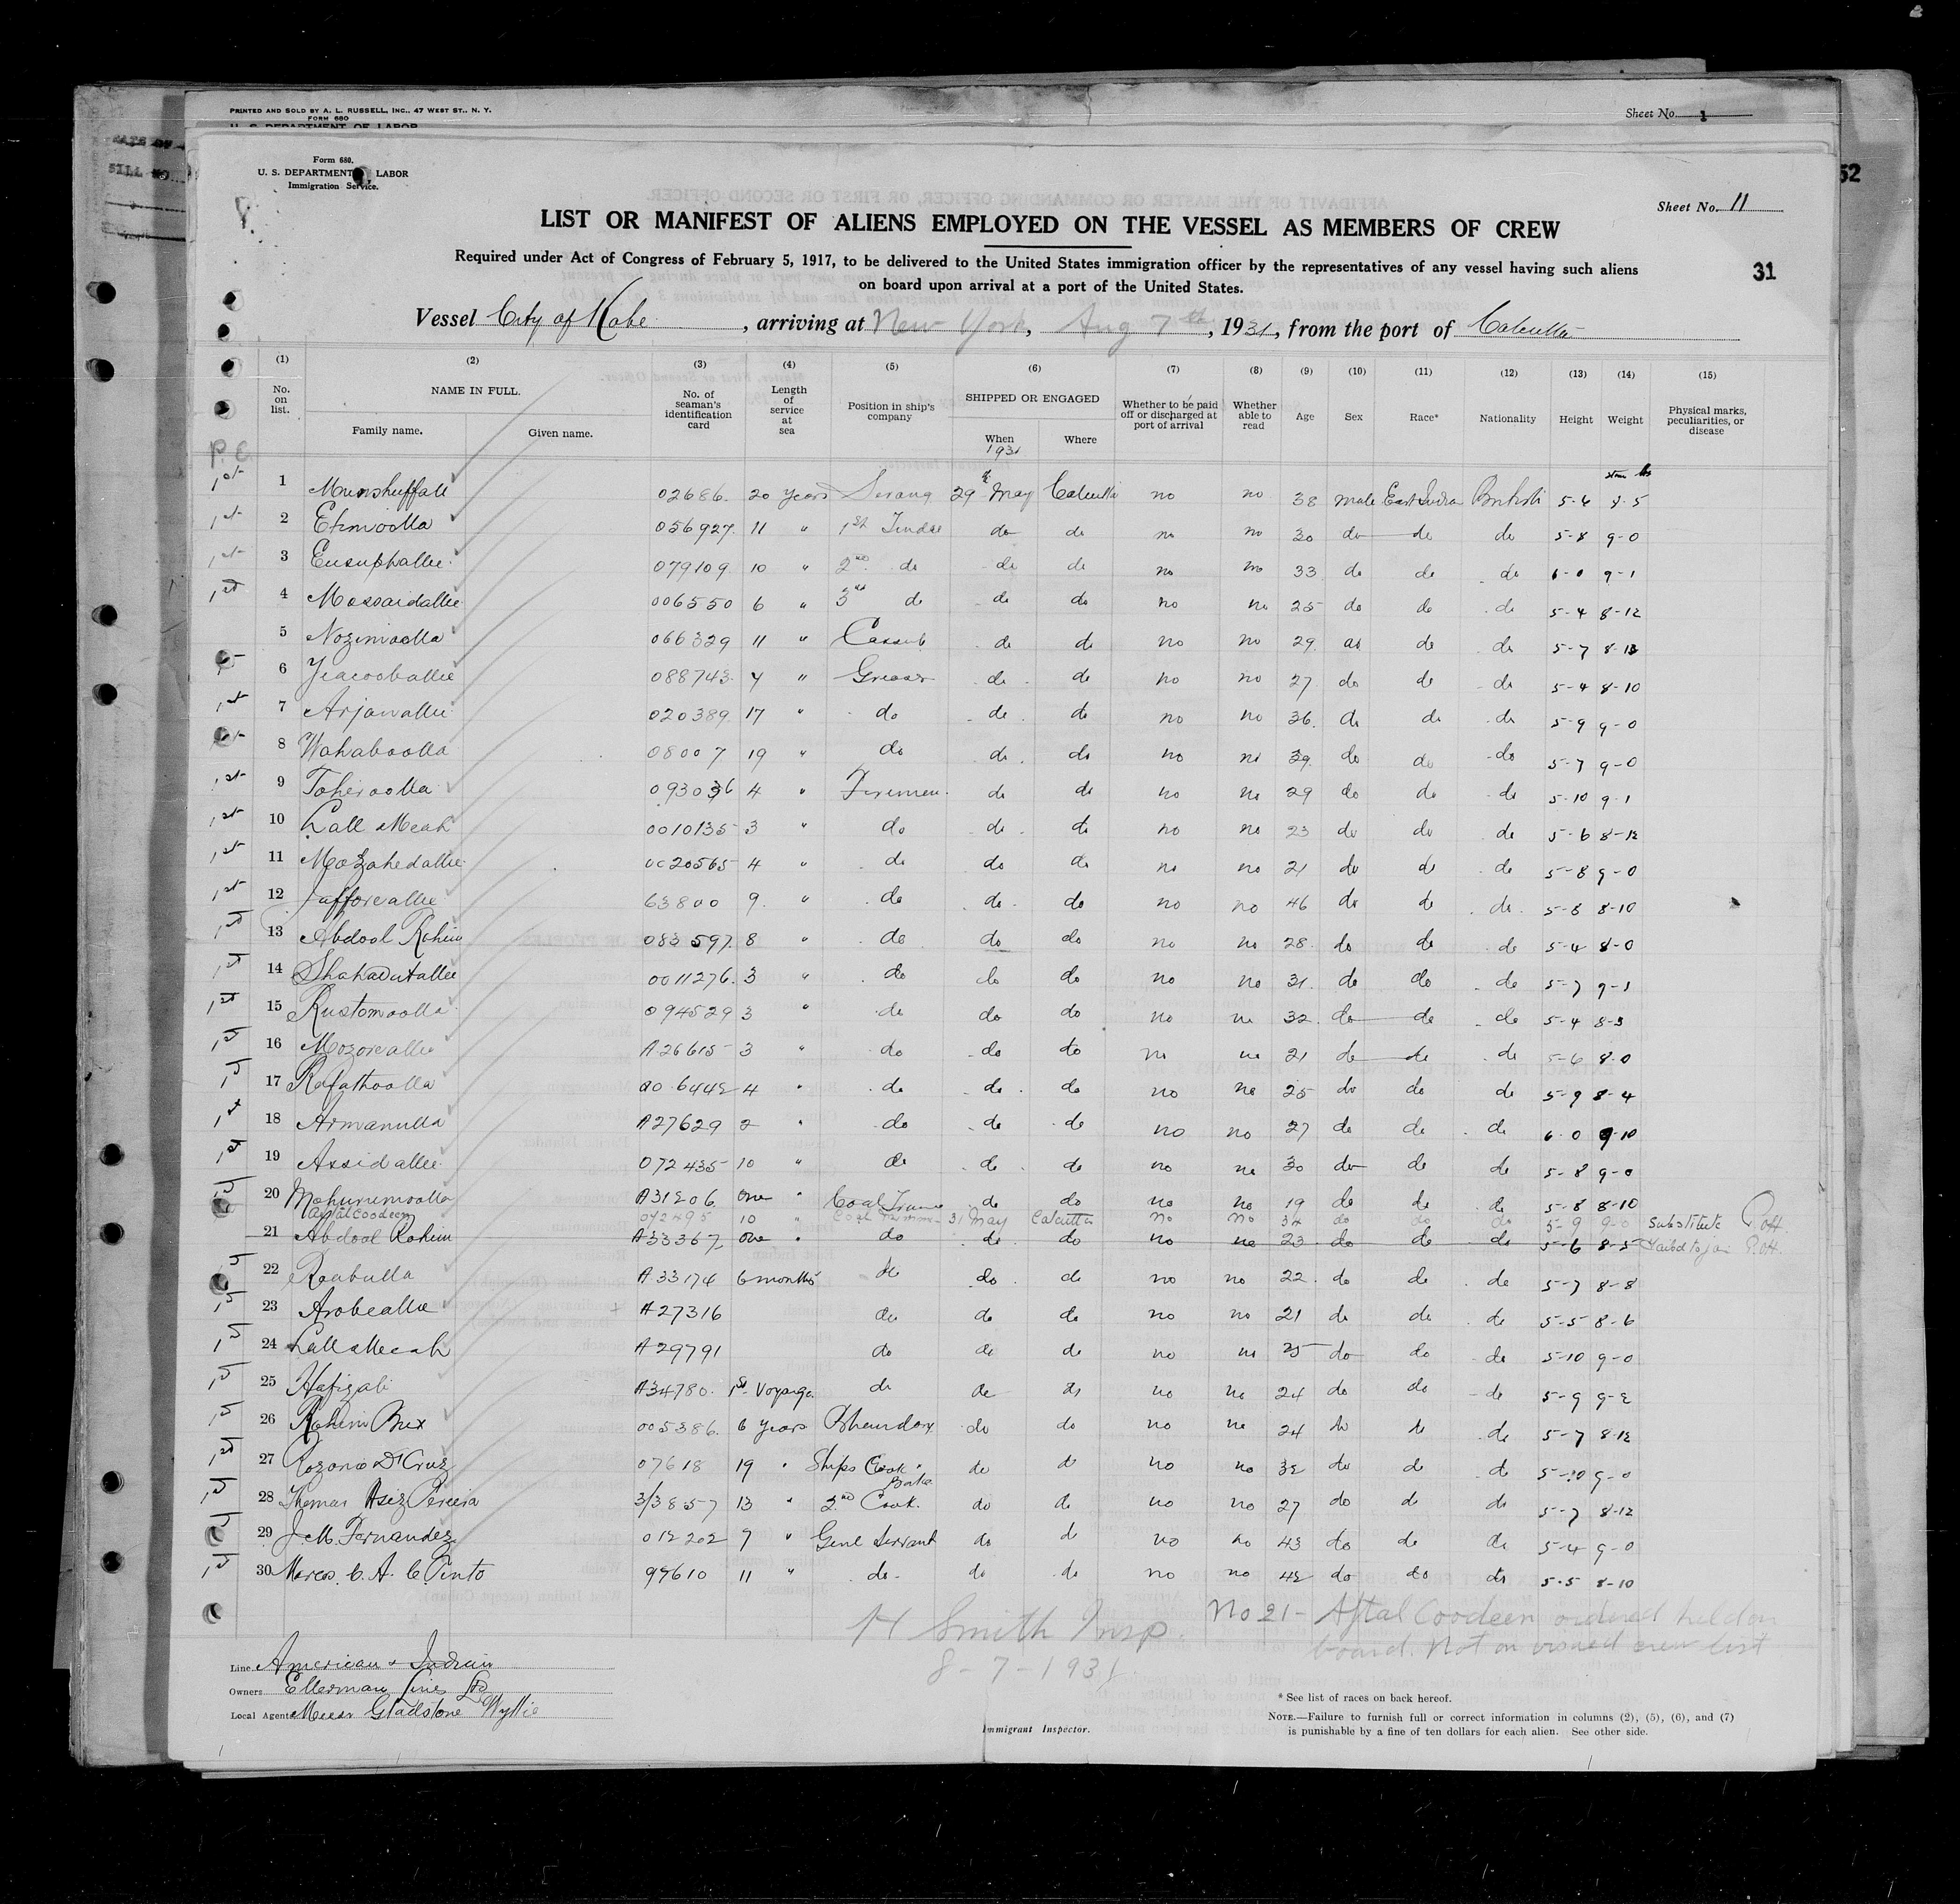 PRINTED AND SOLD BY A. L. RUSSELL, INC., 47 WEST ST., N. Y.
FORM 680
U. S. DEPARTMENT OF LABOR
Sheet No. 1
52
Form 680.
U. S. DEPARTMENT LABOR
Immigration Service.
Sheet No. 11
LIST OR MANIFEST OF ALIENS EMPLOYED ON THE VESSEL AS MEMBERS OF CREW
Required under Act of Congress of February 5, 1917, to be delivered to the United States immigration officer by the representatives of any vessel having such aliens
on board upon arrival at a port of the United States.
31
Vessel City of Kobe, arriving at New York, Aug 7th, 1931, from the port of Calcutta
(1) (2) (3) (4) (5) (6) (7) (8) (9) (10) (11) (12) (13) (14) (15)
No. on list. NAME IN FULL. Family name. Given name. No. of seaman's identification card Length of service at sea Position in ship's company SHIPPED OR ENGAGED When 1931 Where Whether to be paid off or discharged at port of arrival Whether able to read Age Sex Race* Nationality Height Weight Physical marks, peculiarities, or disease
1st 1 Munshuffali 02686. 20 years Serang 29th May Calcutta no no 38 male East Indian British 5-6 8-5
1st 2 Etimoolla 056927. 11 " 1st Tindal do do no no 30 do do do 5-8 9-0
1st 3 Eusuphallie 079109 10 " 2nd do do do no no 33 do do do 6-0 9-1
1st 4 Mossaidallie 006550 6 " 3rd do do do no no 25 do do do 5-4 8-12
5 Nozimoolla 066329 11 " Cassub do do no no 29 do do do 5-7 8-13
6 Yeacooballie 088743 7 " Greaser do do no no 27 do do do 5-4 8-10
1st 7 Arjanallie 020389 17 " do do do no no 36 do do do 5-9 9-0
8 Wahaboolla 08007 19 " do do do no no 39 do do do 5-7 9-0
1st 9 Toheroolla 093036 4 " Firemen do do no no 29 do do do 5-10 9-1
1st 10 Lall Meah 0010135 3 " do do do no no 23 do do do 5-6 8-12
1st 11 Mozahedallie 0020565 4 " do do do no no 21 do do do 5-8 9-0
1st 12 Jafforeallie 63800 9 " do do do no no 46 do do do 5-8 8-10
1st 13 Abdool Rohim 083597 8 " do do do no no 28 do do do 5-4 8-0
1st 14 Shahadutallie 0011276. 3 " do do do no no 31 do do do 5-7 9-1
1st 15 Rustomoolla 094529 3 " do do do no no 32 do do do 5-4 8-3
1st 16 Mozoreallie A26615 3 " do do do no no 21 do do do 5-6 8-0
1st 17 Rafathoolla 006442 4 " do do do no no 25 do do do 5-9 8-4
1st 18 Armanulla A27629 2 " do do do no no 27 do do do 6-0 9-10
1st 19 Assidallie 072435 10 " do do do no no 30 do do do 5-8 9-0
1st 20 Mohurumoolla A31206 One " Coal Trimmer do do no no 19 do do do 5-8 8-10
Aftal Coodeen 072495 10 " Coal Trimmer 31 May Calcutta no no 34 do do do 5-9 9-0 Substitute P.off
21 Abdool Rohim A33367 One " do do do no no 23 do do do 5-6 8-5 Failed to join P.off
1st 22 Roabulla A33174 6 months do do do no no 22 do do do 5-7 8-8
1st 23 Arobeallie A27316 do do do no no 21 do do do 5-5 8-6
1st 24 Lall Meeah A29791 do do do no no 25 do do do 5-10 9-0
1st 25 Hafizali A34780 1st Voyage do do do no no 24 do do do 5-9 9-2
1st 26 Rohim Bux 005386. 6 years Bhandary do do no no 24 do do do 5-7 8-12
1st 27 Rozario D'Cruz 07618 19 " Ships Cook & Baker do do no no 32 do do do 5-10 9-0
1st 28 Thomas Assiz Pereira 3/3857 13 " 2nd Cook. do do no no 27 do do do 5-7 8-12
1st 29 J. M. Fernandez 012202 7 " Genl Servant do do no no 43 do do do 5-4 9-0
1st 30 Marcos. C. A. C. Pinto 99610 11 " do do do no no 42 do do do 5-5 8-10
H Smith Insp.
8-7-1931
No 21 - Aftal Coodeen ordered held on
board. Not on visaed crew list
Line American & Indian
Owners Ellerman Lines Ltd
Local Agents Messr Gladstone Wyllie
Immigrant Inspector.
* See list of races on back hereof.
NOTE.—Failure to furnish full or correct information in columns (2), (5), (6), and (7)
is punishable by a fine of ten dollars for each alien. See other side.